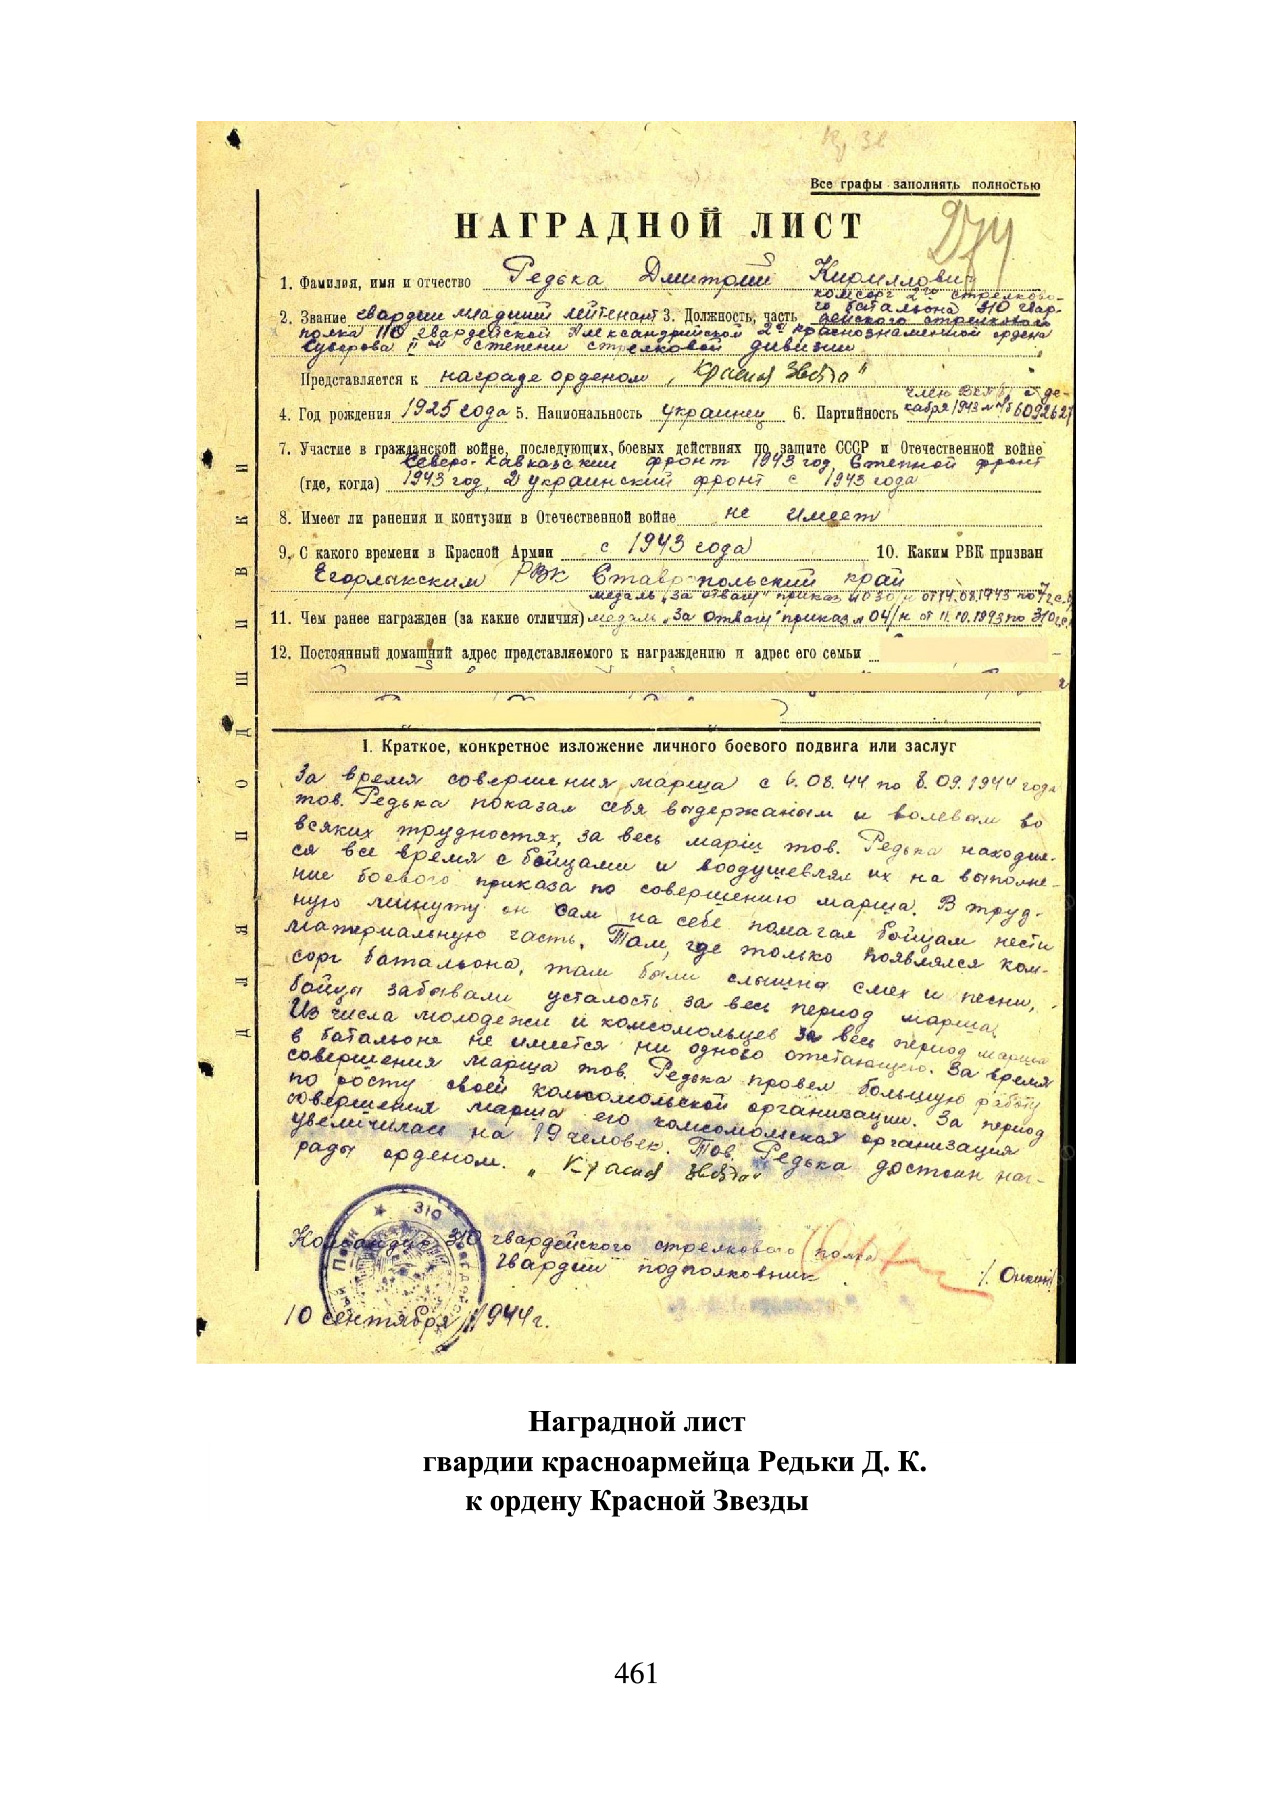 Все графы заполнять полностью
НАГРАДНОЙ ЛИСТ
1. Фамилия, имя и отчество Редька Дмитрий Кириллович
комсорг 2го стрелково-
го батальона 310 гвар-
2. Звание гвардии младший лейтенант 3. Должность, часть дейского стрелкового
полка 110 гвардейской Александрийской 2ой краснознаменной ордена
Суворова II ой степени стрелковой дивизии
Представляется к награде орденом „Красная Звезда"
член ВКП(б) с де-
4. Год рождения 1925 года 5. Национальность украинец 6. Партийность кабря 1943 № 6092627
7. Участие в гражданской войне, последующих, боевых действиях по защите СССР и Отечественной войне
Северо-Кавказский фронт 1943 год, Степной фронт
(где, когда) 1943 год, 2 украинский фронт с 1943 года
8. Имеет ли ранения и контузии в Отечественной войне не имеет
9. С какого времени в Красной Армии с 1943 года 10. Каким РВК призван
Егорлыкским РВК Ставропольский край
медаль „За отвагу" приказ №030/н от 14.08.1943 по
11. Чем ранее награжден (за какие отличия) медаль „За Отвагу" приказ № 04/н от 11.10.1943 по 310 гс
12. Постоянный домашний адрес представляемого к награждению и адрес его семьи
I. Краткое, конкретное изложение личного боевого подвига или заслуг
За время совершения марша с 6.08.44 по 8.09.1944 года
тов. Редька показал себя выдержаным и волевым во
всяких трудностях, за весь марш тов. Редька находил-
ся все время с бойцами и воодушевлял их на выполне-
ние боевого приказа по совершению марша. В труд-
ную минуту он сам на себе помагал бойцам нести
материальную часть. Там, где только появлялся ком-
сорг батальона, там были слышна смех и песни,
бойцы забывали усталость за весь период марша.
Из числа молодежи и комсомольцев за весь период марша
в батальоне не имеется ни одного отстающего. За время
совершения марша тов. Редька провел большую работу
по росту своей комсомольской организации. За период
совершения марша его комсомольская организация
увеличилась на 19 человек. Тов. Редька достоин наг-
рады орденом. „Красная Звезда"
Командир 310 гвардейского стрелкового полка
гвардии подполковник
10 сентября 1944 г.
ДЛЯ ПОДШИВКИ
Наградной лист
гвардии красноармейца Редьки Д. К.
к ордену Красной Звезды
461